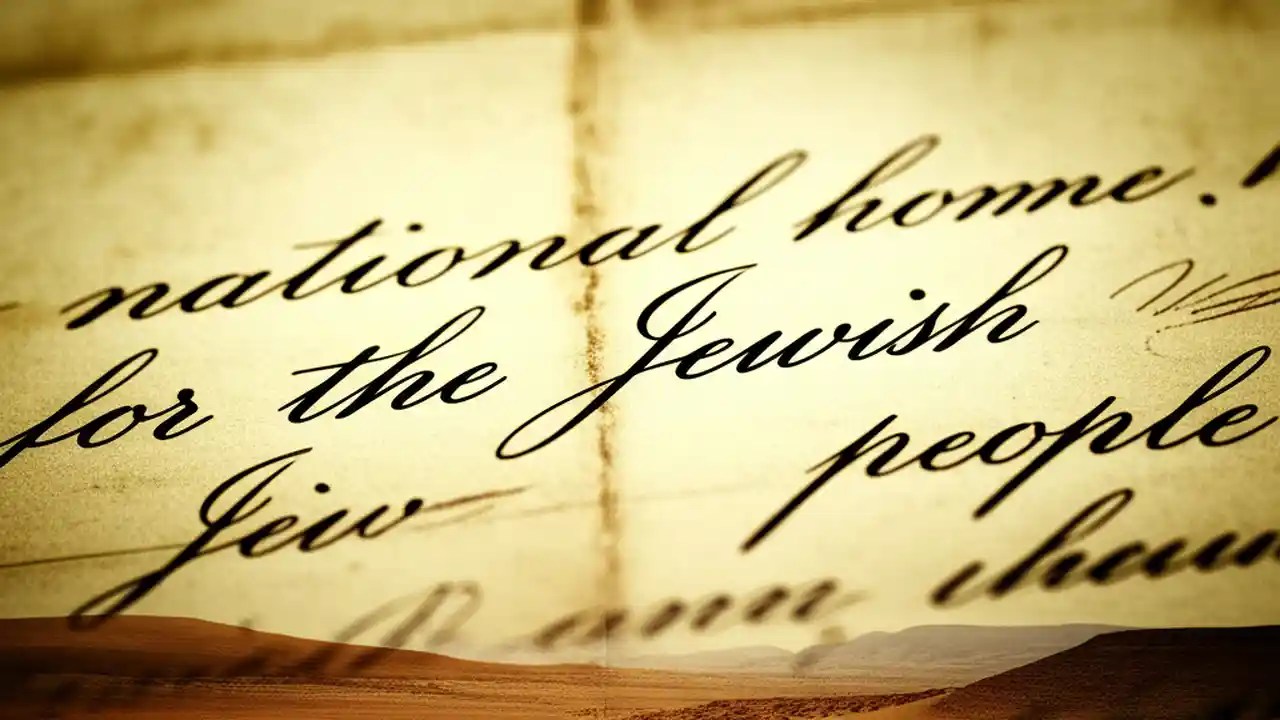 national home.
for the Jewish
people
Jew